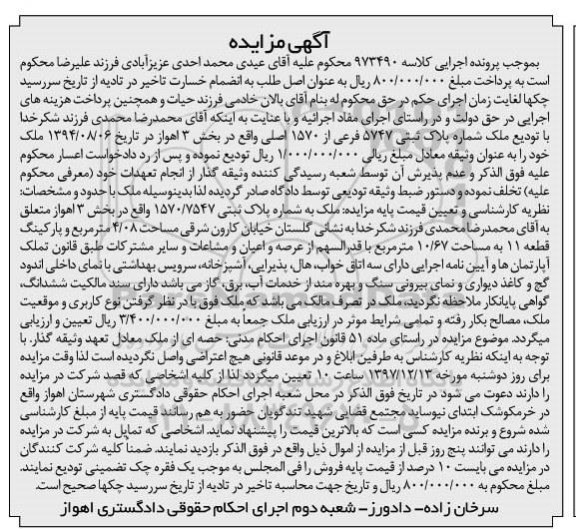 آگهی مزایده
بموجب پرونده اجرایی کلاسه ۹۷۳۴۹۰ محکوم علیه آقای عیدی محمد احدی عزیزآبادی فرزند علیرضا محکوم
است به پرداخت مبلغ ۸۰۰/۰۰۰/۰۰۰ ریال به عنوان اصل طلب به انضمام خسارت تاخیر در تادیه از تاریخ سررسید
چکها لغایت زمان اجرای حکم در حق محکوم له بنام آقای یالان خادمی فرزند حیات و همچنین پرداخت هزینه های
اجرایی در حق دولت و در راستای اجرای مفاد اجرائیه و با عنایت به اینکه آقای محمدرضا محمدی فرزند شکرخدا
با تودیع ملک شماره پلاک ثبتی ۵۷۴۷ فرعی از ۱۵۷۰ اصلی واقع در بخش ۳ اهواز در تاریخ ۱۳۹۴/۰۸/۰۶ ملک
خود را به عنوان وثیقه معادل مبلغ ریالی ۱/۰۰۰/۰۰۰/۰۰۰ ریال تودیع نموده و پس از رد دادخواست اعسار محکوم
علیه فوق الذکر و عدم پذیرش آن توسط شعبه رسیدگی کننده وثیقه گذار از انجام تعهدات خود (معرفی محکوم
علیه) تخلف نموده و دستور ضبط وثیقه تودیعی توسط دادگاه صادر گردیده لذا بدینوسیله ملک با حدود و مشخصات:
نظریه کارشناسی و تعیین قیمت پایه مزایده: ملک به شماره پلاک ثبتی ۱۵۷۰/۷۵۴۷ واقع در بخش ۳ اهواز متعلق
به آقای محمدرضا محمدی فرزند شکرخدا به نشانی گلستان خیابان کارون شرقی مساحت ۴/۰۸ مترمربع و پارکینگ
قطعه ۱۱ به مساحت ۱۰/۶۷ مترمربع با قدرالسهم از عرصه و اعیان و مشاعات و سایر مشترکات طبق قانون تملک
آپارتمان ها و آیین نامه اجرایی دارای سه اتاق خواب، هال، پذیرایی، آشپزخانه، سرویس بهداشتی با نمای داخلی اندود
گچ و کاغذ دیواری و نمای بیرونی سنگ و بهره مند از خدمات آب، برق، گاز می باشد دارای سند مالکیت ششدانگ،
گواهی پایانکار ملاحظه نگردید، ملک در تصرف مالک می باشد که ملک فوق با در نظر گرفتن نوع کاربری و موقعیت
ملک، مصالح بکار رفته و تمامی شرایط موثر در ارزیابی ملک جمعاً به مبلغ ۳/۴۰۰/۰۰۰/۰۰۰ ریال تعیین و ارزیابی
میگردد. موضوع مزایده در راستای ماده ۵۱ قانون اجرای احکام مدنی: حصه ای از ملک معادل تعهد وثیقه گذار. با
توجه به اینکه نظریه کارشناس به طرفین ابلاغ و در موعد قانونی هیچ اعتراضی واصل نگردیده است لذا وقت مزایده
برای روز دوشنبه مورخه ۱۳۹۷/۱۲/۱۳ ساعت ۱۰ تعیین میگردد لذا از کلیه اشخاصی که قصد شرکت در مزایده
را دارند دعوت می شود در تاریخ فوق الذکر در محل شعبه اجرای احکام حقوقی دادگستری شهرستان اهواز واقع
در خرمکوشک ابتدای نیوساید مجتمع قضایی شهید تندگویان حضور به هم رسانند قیمت پایه از مبلغ کارشناسی
شده شروع و برنده مزایده کسی است که بالاترین قیمت را پیشنهاد نماید. اشخاصی که تمایل به شرکت در مزایده
را دارند می توانند پنج روز قبل از مزایده از اموال ذیل واقع در فوق الذکر بازدید نمایند. ضمناً کلیه شرکت کنندگان
در مزایده می بایست ۱۰ درصد از قیمت پایه فروش را فی المجلس به موجب یک فقره چک تضمینی تودیع نمایند.
مبلغ محکوم به ۸۰۰/۰۰۰/۰۰۰ ریال و تاریخ جهت محاسبه تاخیر در تادیه از تاریخ سررسید چکها صحیح است.
سرخان زاده- دادورز- شعبه دوم اجرای احکام حقوقی دادگستری اهواز